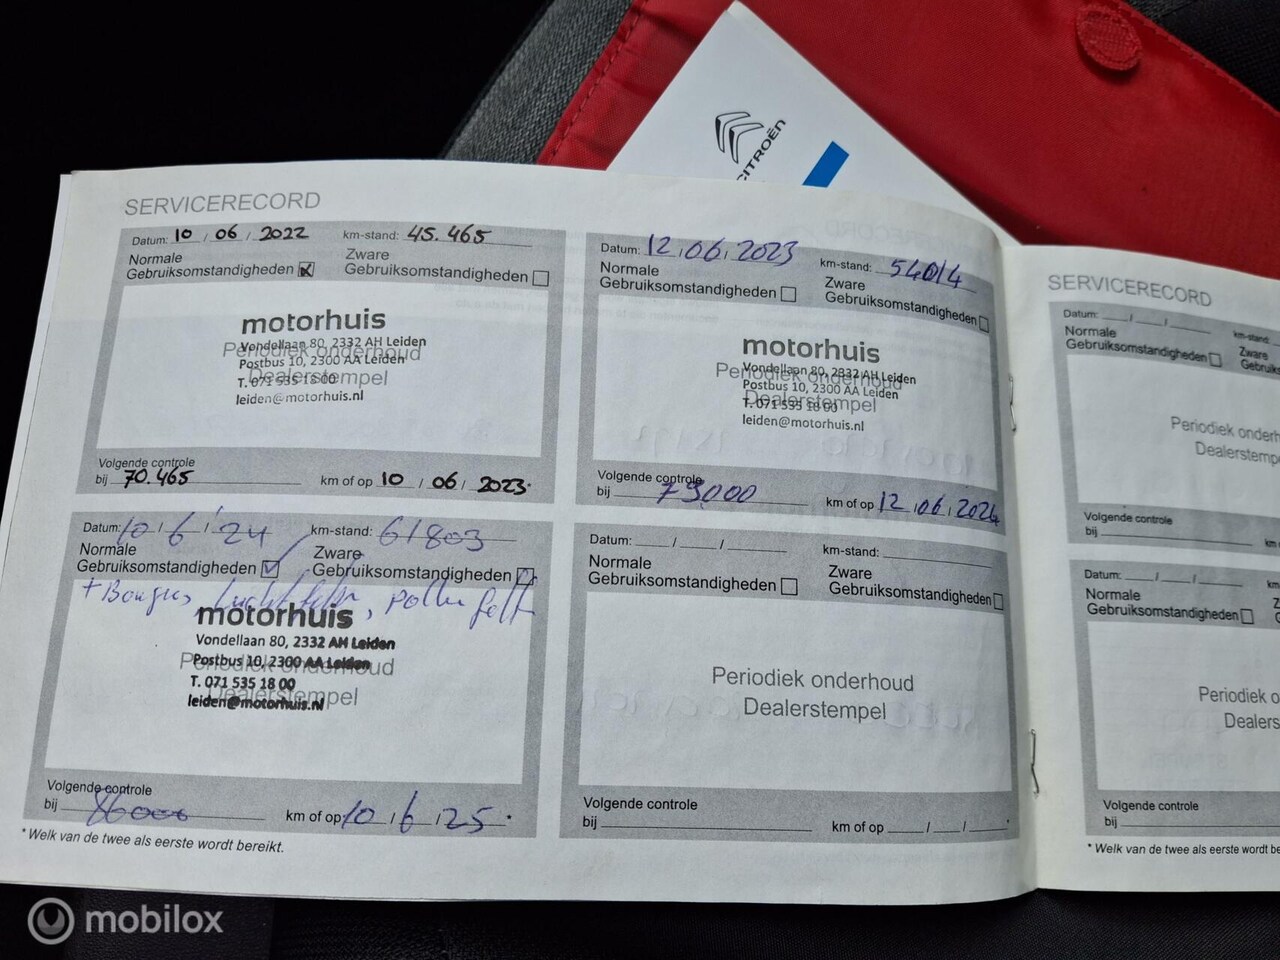 CITROËN
SERVICERECORD
Datum: 10 / 06 / 2022 km-stand: 45.465
Normale
Gebruiksomstandigheden
Zware
Gebruiksomstandigheden
motorhuis
Vondellaan 80, 2332 AH Leiden
Periodiek onderhoud
Postbus 10, 2300 AA Leiden
Dealerstempel
T. 071 535 18 00
leiden@motorhuis.nl
Volgende controle
bij 70.465 km of op 10 / 06 / 2023.
Datum: 12 / 06 / 2023 km-stand: 54014
Normale
Gebruiksomstandigheden
Zware
Gebruiksomstandigheden
motorhuis
Vondellaan 80, 2332 AH Leiden
Periodiek onderhoud
Postbus 10, 2300 AA Leiden
Dealerstempel
T. 071 535 18 00
leiden@motorhuis.nl
Volgende controle
bij 79.000 km of op 12 / 06 / 2024
Datum: 10 / 6 / 24 km-stand: 61803
Normale
Gebruiksomstandigheden
Zware
Gebruiksomstandigheden
+ Bougies,
motorhuis
Vondellaan 80, 2332 AH Leiden
Postbus 10, 2300 AA Leiden
Periodiek onderhoud
T. 071 535 18 00
Dealerstempel
leiden@motorhuis.nl
Volgende controle
bij 86000 km of op 10 / 6 / 25.
* Welk van de twee als eerste wordt bereikt.
Datum: / / km-stand:
Normale
Gebruiksomstandigheden
Zware
Gebruiksomstandigheden
Periodiek onderhoud
Dealerstempel
Volgende controle
bij km of op / / .
SERVICERECORD
Datum: / / km-stand:
Normale
Gebruiksomstandigheden
Zware
Periodiek onderh
Dealerstemp
Volgende controle
bij km
Datum: / / km-s
Normale
Gebruiksomstandigheden
Periodiek on
Dealers
Volgende controle
bij
* Welk van de twee als eerste wordt be
mobilox